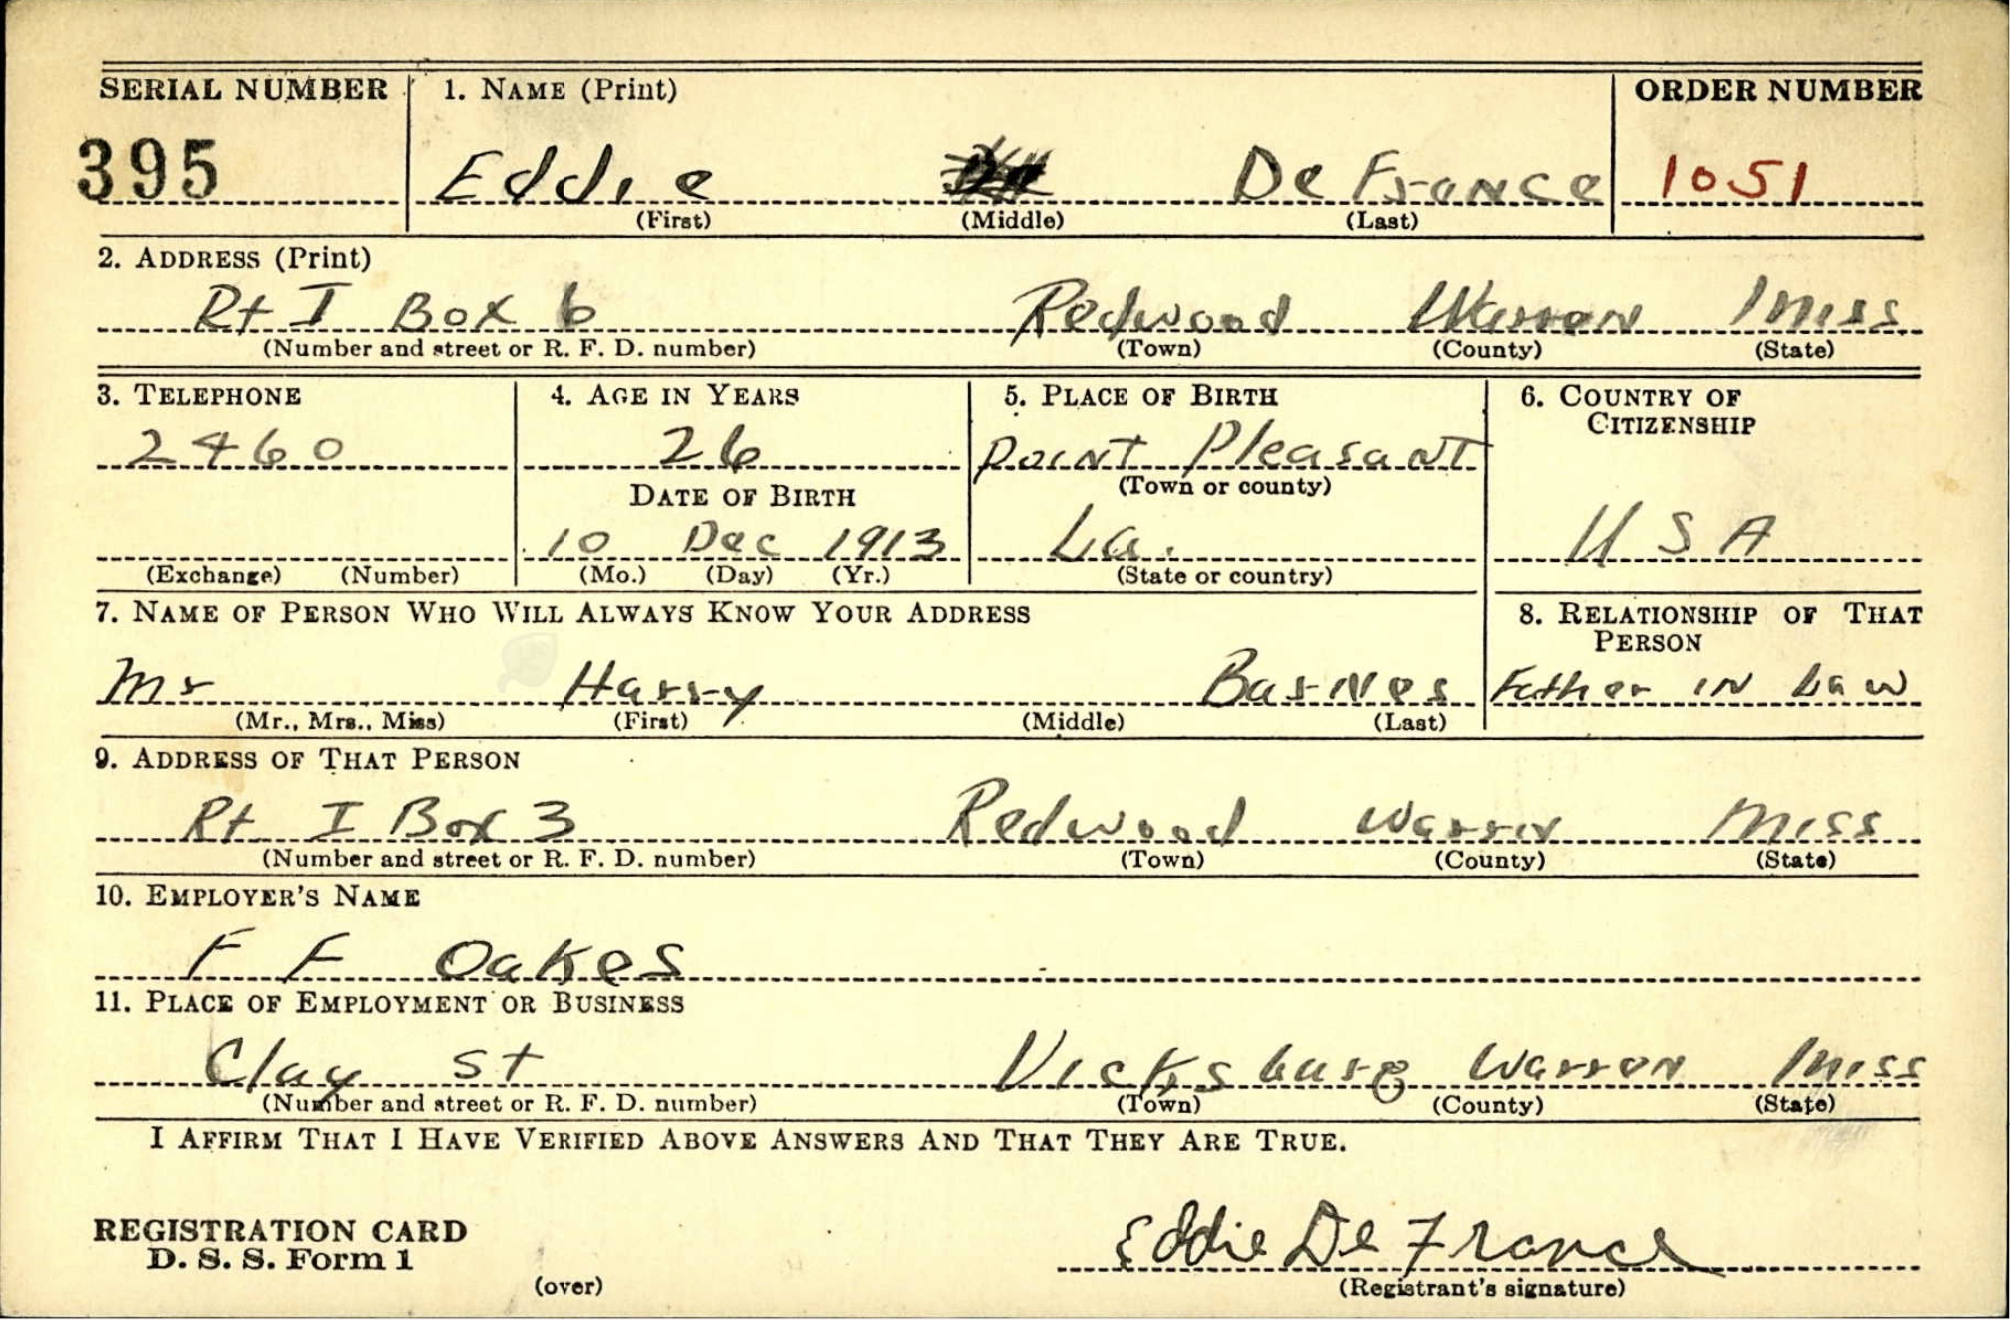 SERIAL NUMBER 1. NAME (Print) ORDER NUMBER
395 Eddie De France 1051
(First) (Middle) (Last)
2. ADDRESS (Print)
Rt I Box 6 Redwood Warren Miss
(Number and street or R. F. D. number) (Town) (County) (State)
3. TELEPHONE 4. AGE IN YEARS 5. PLACE OF BIRTH 6. COUNTRY OF
CITIZENSHIP
2460 26 Point Pleasant
DATE OF BIRTH (Town or county)
10 Dec 1913 La. USA
(Exchange) (Number) (Mo.) (Day) (Yr.) (State or country)
7. NAME OF PERSON WHO WILL ALWAYS KNOW YOUR ADDRESS 8. RELATIONSHIP OF THAT
PERSON
Mr Harry Barnes Father in Law
(Mr., Mrs., Miss) (First) (Middle) (Last)
9. ADDRESS OF THAT PERSON
Rt I Box 3 Redwood Warren Miss
(Number and street or R. F. D. number) (Town) (County) (State)
10. EMPLOYER'S NAME
F F Oakes
11. PLACE OF EMPLOYMENT OR BUSINESS
Clay St Vicksburg Warren Miss
(Number and street or R. F. D. number) (Town) (County) (State)
I AFFIRM THAT I HAVE VERIFIED ABOVE ANSWERS AND THAT THEY ARE TRUE.
REGISTRATION CARD
D. S. S. Form 1 Eddie De France
(over) (Registrant's signature)